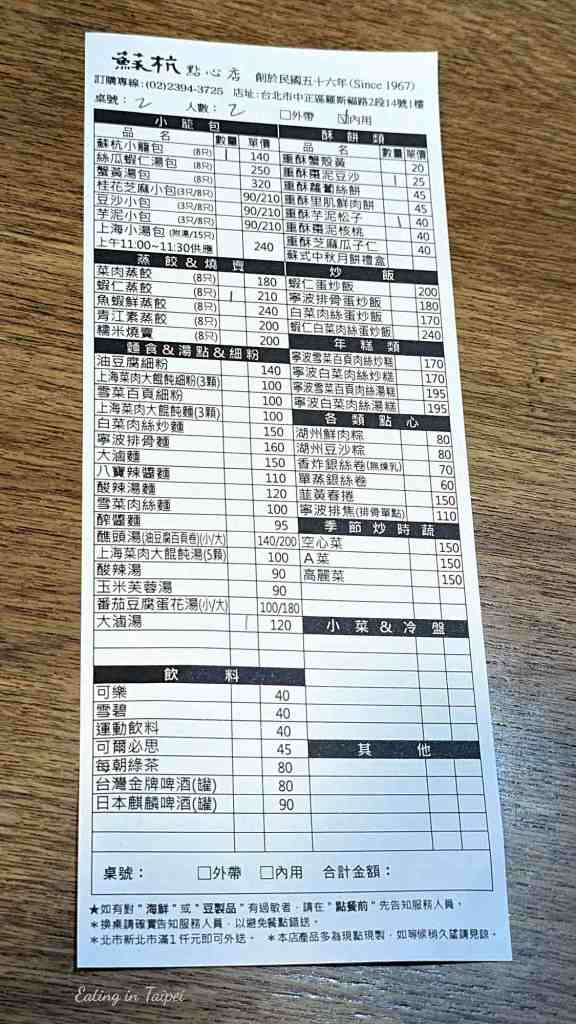 蘇杭 點心店 創於民國五十六年(Since 1967)
訂購專線:(02)2394-3725 店址:台北市中正區羅斯福路2段14號1樓
桌號: 2 人數: 2 □外帶 ☑內用
小籠包
品名 數量 單價
蘇杭小籠包 (8只) 1 140
絲瓜蝦仁湯包 (8只) 250
蟹黃湯包 (8只) 320
桂花芝麻小包(3只/8只) 90/210
豆沙小包 (3只/8只) 90/210
芋泥小包 (3只/8只) 90/210
上海小湯包 (附湯/15只)
上午11:00~11:30供應 240
蒸餃&燒賣
菜肉蒸餃 (8只) 180
蝦仁蒸餃 (8只) 1 210
魚蝦鮮蒸餃 (8只) 240
青江素蒸餃 (8只) 200
糯米燒賣 (8只) 200
麵食&湯點&細粉
油豆腐細粉 140
上海菜肉大餛飩細粉(3顆) 100
雪菜百頁細粉 100
上海菜肉大餛飩麵(3顆) 100
白菜肉絲炒麵 150
寧波排骨麵 160
大滷麵 150
八寶辣醬麵 110
酸辣湯麵 120
雪菜肉絲麵 100
醡醬麵 95
醮頭湯(油豆腐百頁卷)(小/大) 140/200
上海菜肉大餛飩湯(5顆) 100
酸辣湯 90
玉米芙蓉湯 90
番茄豆腐蛋花湯(小/大) 100/180
大滷湯 1 120
飲料
可樂 40
雪碧 40
運動飲料 40
可爾必思 45
每朝綠茶 80
台灣金牌啤酒(罐) 80
日本麒麟啤酒(罐) 90
酥餅類
品名 數量 單價
重酥蟹殼黃 20
重酥棗泥豆沙 1 25
重酥蘿蔔絲餅 45
重酥里肌鮮肉餅 45
重酥芋泥松子 1 40
重酥棗泥核桃 40
重酥芝麻瓜子仁 40
蘇式中秋月餅禮盒
炒飯
蝦仁蛋炒飯 200
寧波排骨蛋炒飯 180
白菜肉絲蛋炒飯 170
蝦仁白菜肉絲蛋炒飯 240
年糕類
寧波雪菜百頁肉絲炒糕 170
寧波白菜肉絲炒糕 170
寧波雪菜百頁肉絲湯糕 195
寧波白菜肉絲湯糕 195
各類點心
湖州鮮肉粽 80
湖州豆沙粽 80
香炸銀絲卷(無煉乳) 70
單蒸銀絲卷 60
韮黃春捲 150
寧波排焦(排骨單點) 110
季節炒時蔬
空心菜 150
A菜 150
高麗菜 150
小菜&冷盤
其他
桌號: □外帶 □內用 合計金額:
★如有對"海鮮"或"豆製品"有過敏者,請在"點餐前"先告知服務人員。
*換桌請確實告知服務人員,以避免餐點錯送。
*北市新北市滿1仟元即可外送。 *本店產品多為現點現製,如等候稍久望請見諒。
Eating in Taipei